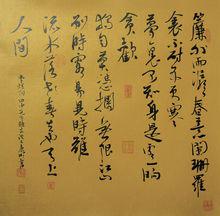 簾外雨潺潺春意闌珊羅
衾不耐五更寒
夢裏不知身是客一晌
貪歡
獨自莫憑欄無限江山
別時容易見時難
流水落花春去也天上
人間